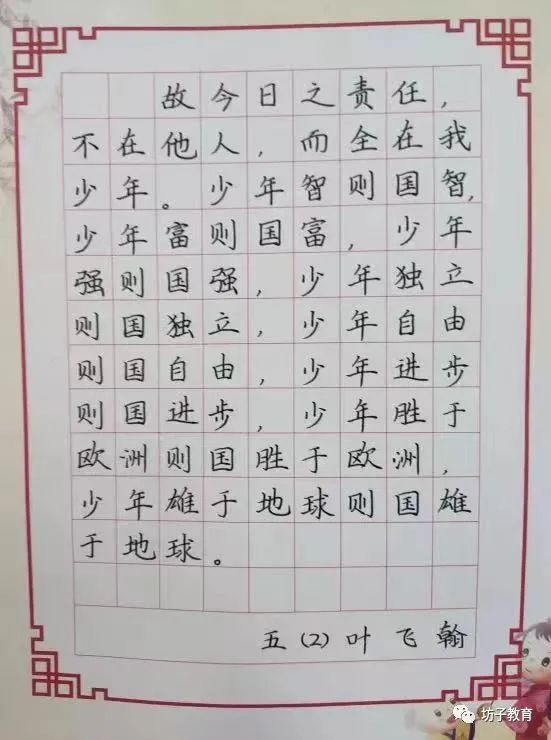 故今日之责任，
不在他人，而全在我
少年。少年智则国智，
少年富则国富，少年
强则国强，少年独立
则国独立，少年自由
则国自由，少年进步
则国进步，少年胜于
欧洲则国胜于欧洲，
少年雄于地球则国雄
于地球。
五(2)叶飞翰
坊子教育